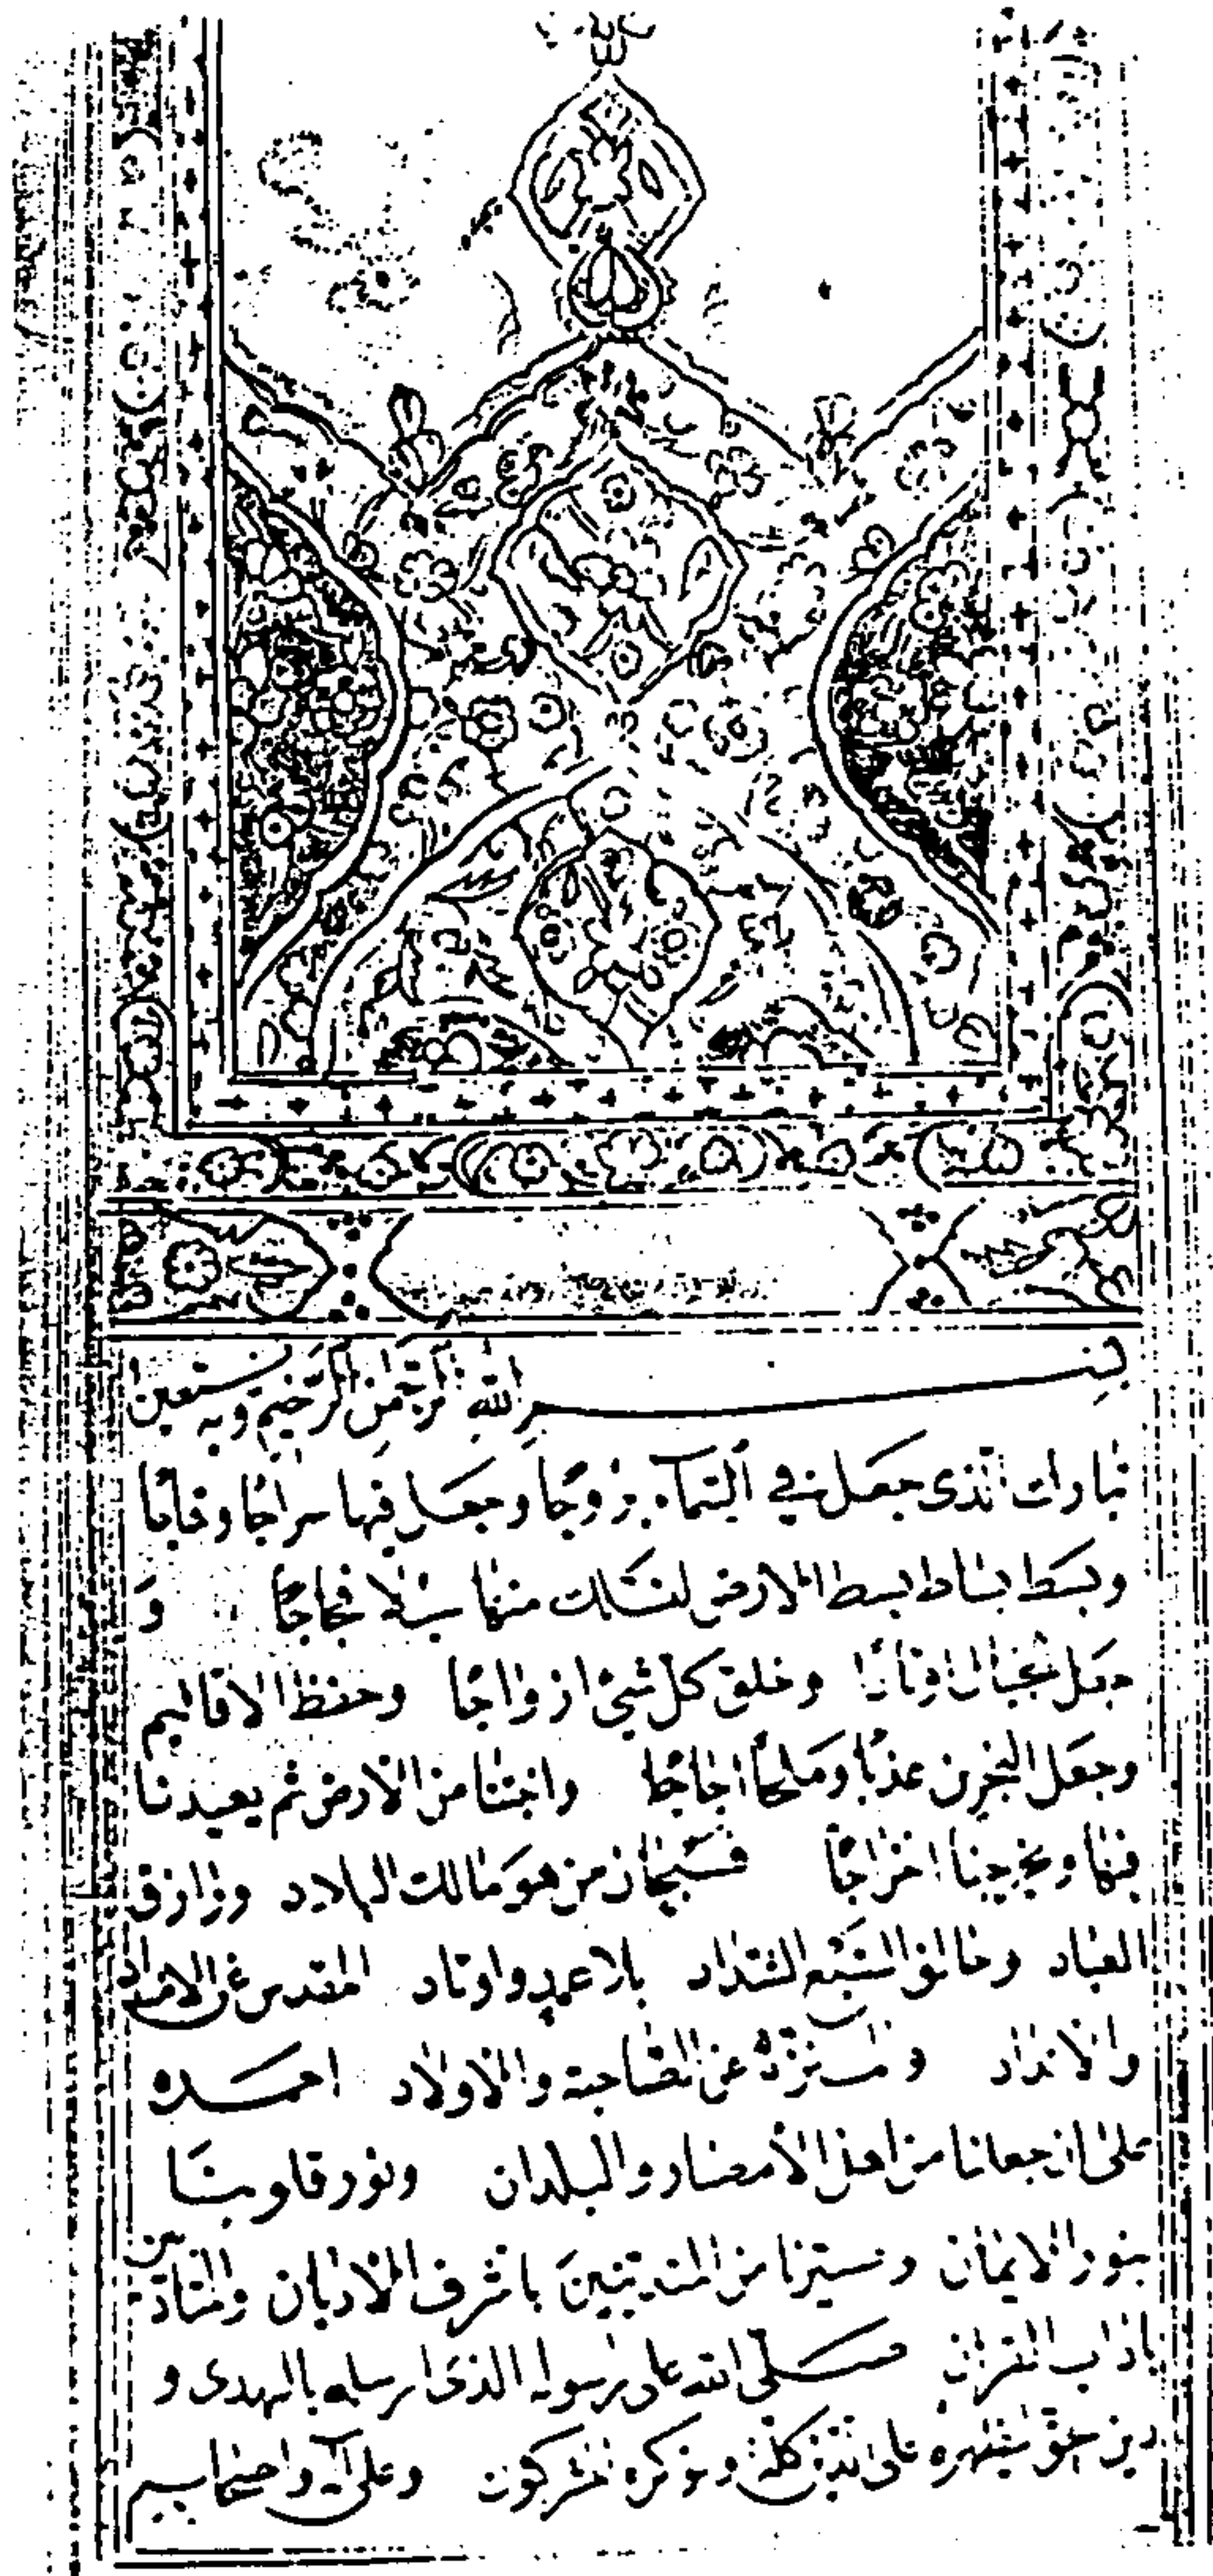 بسم الله الرحمن الرحيم وبه نستعين
تبارك الذى جعل في السماء بروجًا وجعل فيها سراجًا وهاجًا
وبسط بساط بسط الارض لنسلك منها سبلا فجاجًا و
جعل الجبال اوتادًا وخلق كل شئ ازواجًا وحفظ الاقاليم
وجعل البحرين عذبًا ومالحًا اجاجًا من الارض ثم يعيدنا
فيها ويخرجنا اخراجًا فسبحان من هو مالك البلاد ورازق
العباد وخالق السبع الشداد بلا عمد واوتاد المقدس عن
والانداد عن الصاحبة والاولاد احمده
على ان جعلنا من اهل الامصار والبلدان ونور قلوبنا
بنور الايمان وسيرنا من المتدينين باشرف الاديان والمتادبين
باداب القران صلى الله على رسوله الذى ارسله بالهدى و
دين حق ليظهره على الدين كله ولو كره المشركون وعلى آله واصحابه